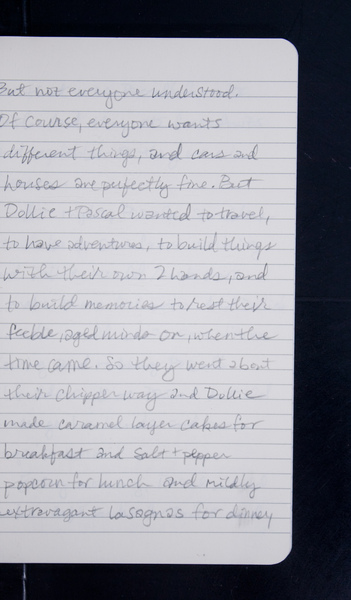 But not everyone understood.
Of course, everyone wants
different things, and cars and
houses are perfectly fine. But
Dollie + Pascal wanted to travel,
to have adventures, to build things
with their own 2 hands, and
to build memories to rest their
feeble, aged minds on, when the
time came. So they went about
their chipper way and Dollie
made caramel layer cakes for
breakfast and salt + pepper
popcorn for lunch and mildly
extravagant lasagnas for dinner